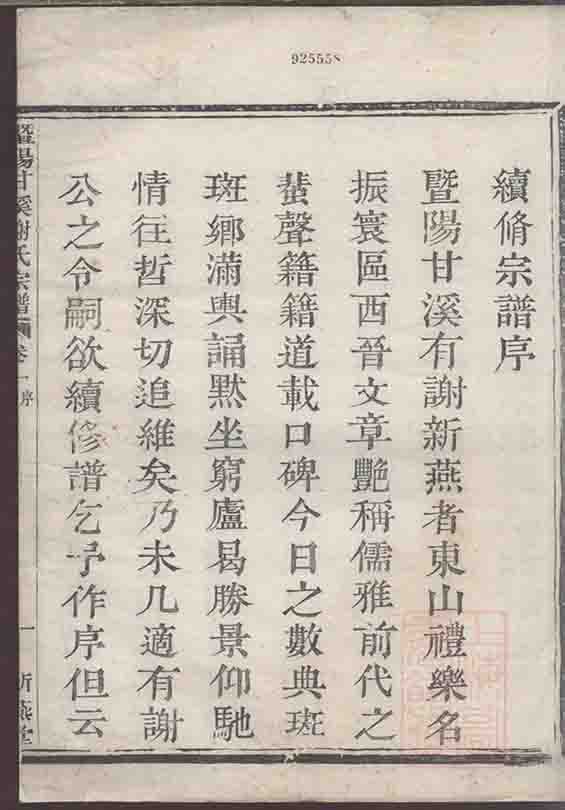 925558
續脩宗譜序
暨陽甘溪有謝新燕者東山禮樂名
振寰區西晉文章艷稱儒雅前代之
蜚聲籍籍道載口碑今日之數典斑
斑鄉滿輿誦默坐窮廬曷勝景仰馳
情往哲深切追維矣乃未几適有謝
公之令嗣欲續修譜乞予作序但云
暨陽甘溪謝氏宗譜 卷一 序 一 新燕堂